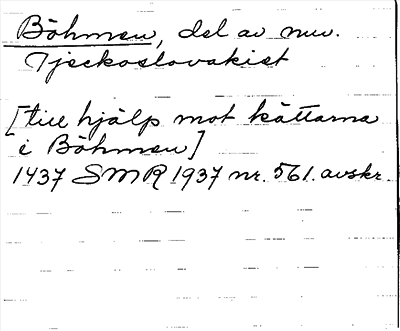 Böhmen, del av nuv.
Tjeckoslovakiet
[till hjälp mot kättarna
i Böhmen]
1437 SMR 1937 nr. 561. avskr.